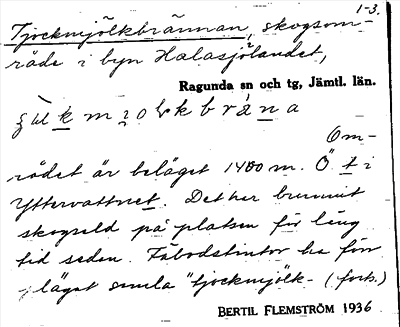 1-3.
Tjockmjölkbrännan, skogsom-
råde i byn Halasjölandet,
Ragunda sn och tg, Jämtl. län.
Om-
rådet är beläget 1400 m. Ö t i
Yttervattnet. Det har brunnit
skogseld på platsen för lång
tid sedan. Fäbodstintor ha förr
lägat samla "tjockmjölk- (forts.)
BERTIL FLEMSTRÖM 1936